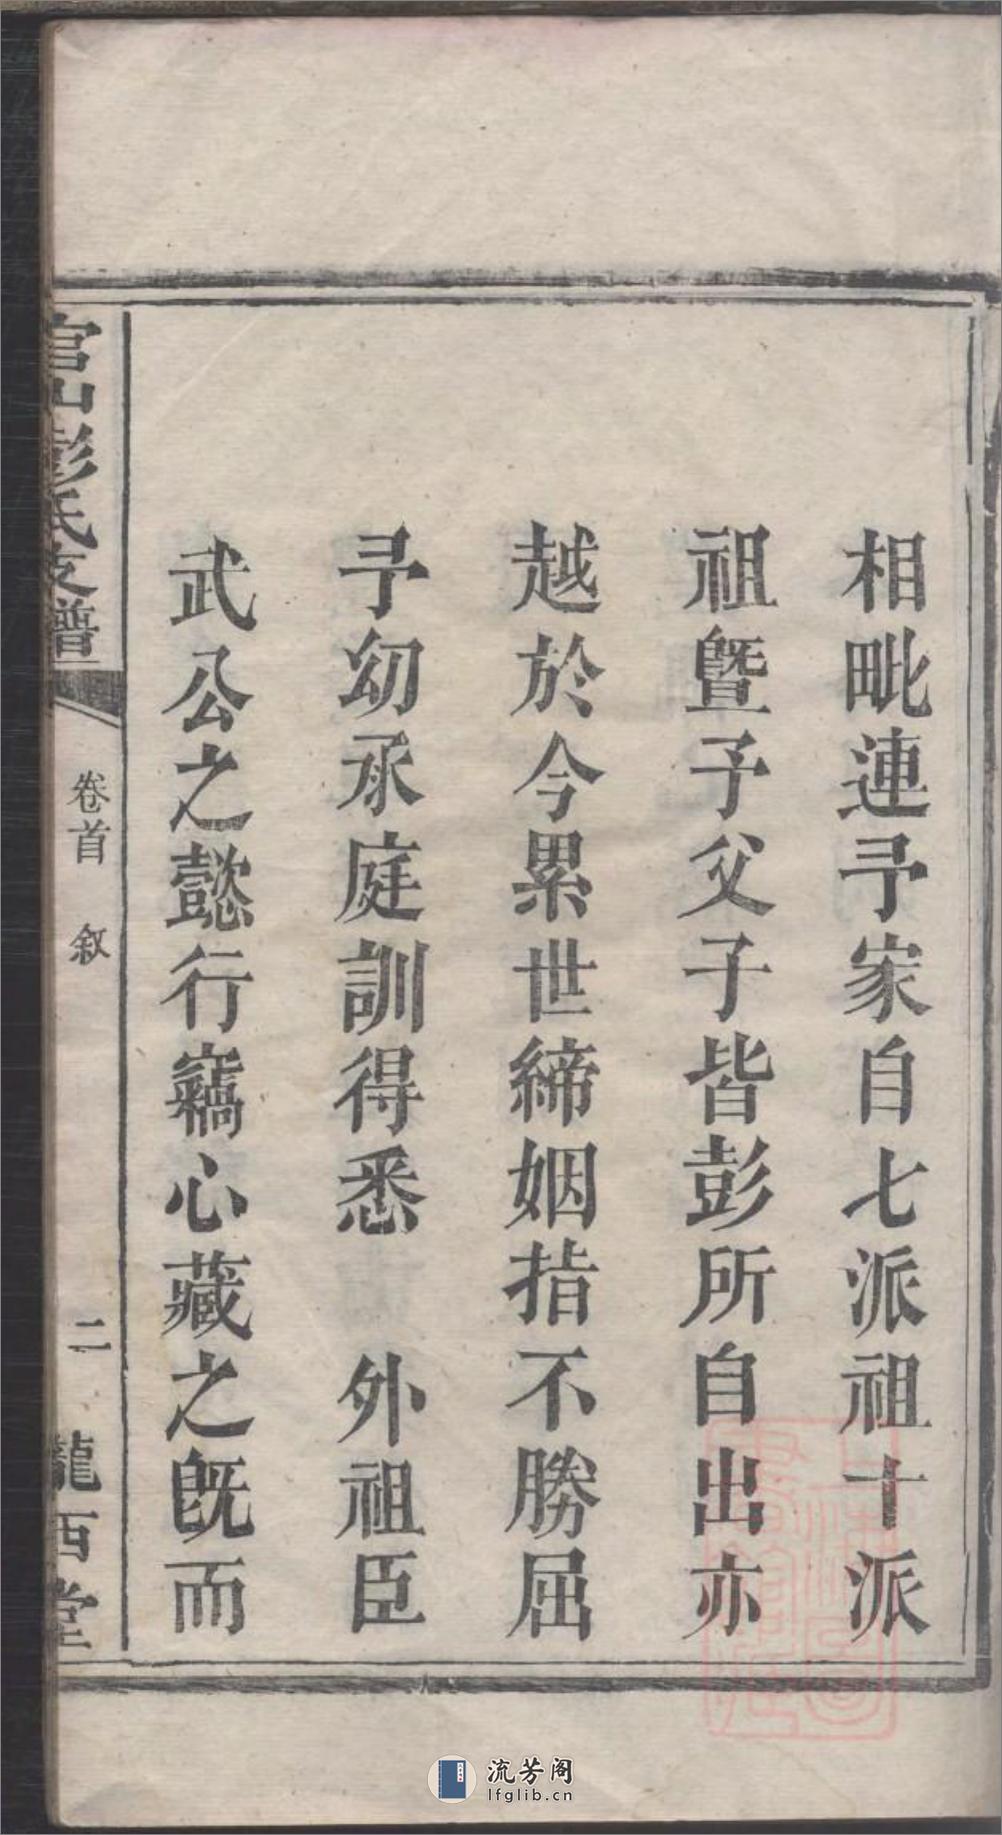 相毗連予家自七派祖十派
祖暨子父子皆彭所自出亦
越於今累世締姻指不勝屈
予幼承庭訓得悉　外祖臣
武公之懿行竊心藏之既而
官山彭氏支譜
卷首　叙
二
龍西堂
流芳阁
lfglib.cn